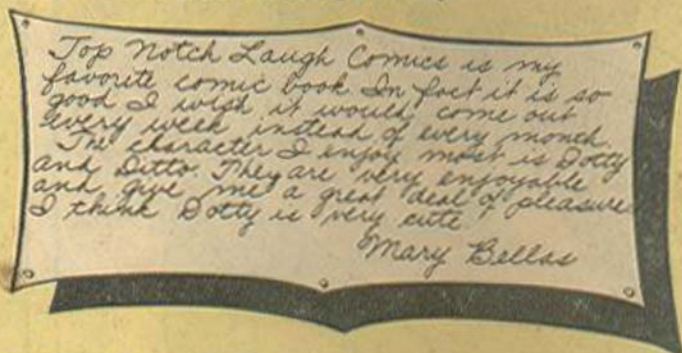 Top Notch Laugh Comics is my
favorite comic book In fact it is so
good I wish it would come out
every week instead of every month.
The character I enjoy most is Dotty
and Ditto. They are very enjoyable
and give me a great deal of pleasure
I think Dotty is very cute.
Mary Bellas